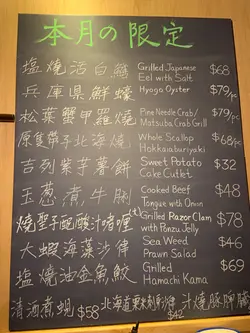 本月の限定
塩燒活白鱔 Grilled Japanese Eel with Salt $68
兵庫県鮮蠔 Hyogo Oyster $79/pc
松葉蟹甲羅燒 Pine Needle Crab/ Matsuba Crab Grill $79/pc
原隻帶子北海燒 Whole Scallop Hokkaiaburiyaki $68/pc
吉列紫芋薯餅 Sweet Potato Cake Cutlet $32
玉葱煮牛脷 Cooked Beef Tongue with Onion $48
燒聖子配酸汁啫喱 (1) Grilled Razor Clam with Ponzu Jelly $78
大蝦海藻沙律 Sea Weed Prawn Salad $46
塩燒油金魚鮫 Grilled Hamachi Kama $69
清酒煮蜆 $58 北海道 刺身沙律 汁燒豚 $42